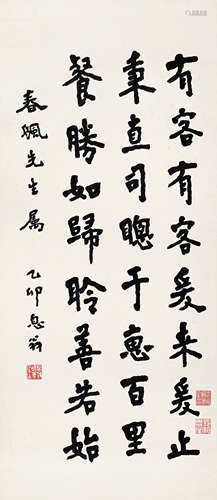 有客有客爰来爰止
秉直司聰于惠百里
餐勝如歸聆善若始
春先生属
乙卯息翁